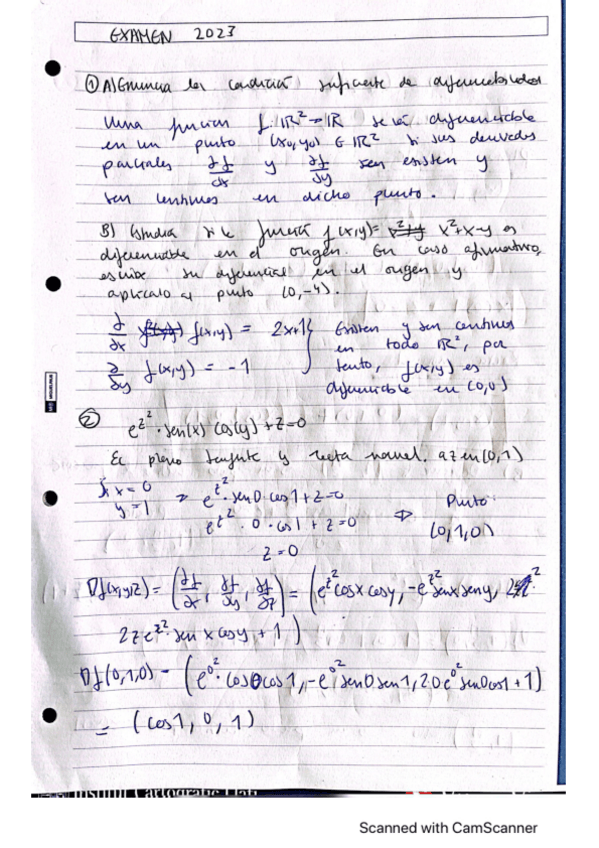 EXAMEN 2023
① A) Enuncia la condición suficiente de diferenciabilidad
Una funcion f: ℝ² → ℝ será diferenciable
en un punto (x0, y0) ∈ ℝ² si sus derivadas
parciales ∂f/∂x y ∂f/∂y existen y
son continuas en dicho punto.
B) Estudia si la función f(x,y)= x²+x-y es
diferenciable en el origen. En caso afirmativo,
escribe su diferencial en el origen y
aplícalo al punto (0,-4).
∂/∂x f(x,y) = 2x+1 } Existen y son continuas
en todo ℝ², por
∂/∂y f(x,y) = -1 tanto, f(x,y) es
diferenciable en (0,0)
②
e^z² · sen(x) cos(y) + z = 0
El plano tangente y recta normal. a z en (0,1)
Si x = 0 ⇒ e^z² · sen0 · cos1 + z = 0 Punto:
y = 1 e^z² · 0 · cos1 + z = 0 ⇒ (0,1,0)
z = 0
∇f(x,y,z) = (∂f/∂x, ∂f/∂y, ∂f/∂z) = (e^z² cosx cosy, -e^z² senx seny,
2z e^z² sen x cosy + 1)
∇f(0,1,0) = (e^0² · cos0 cos1, -e^0² sen0 sen1, 2·0 e^0² sen0 cos1 + 1)
= (cos1, 0, 1)
Scanned with CamScanner